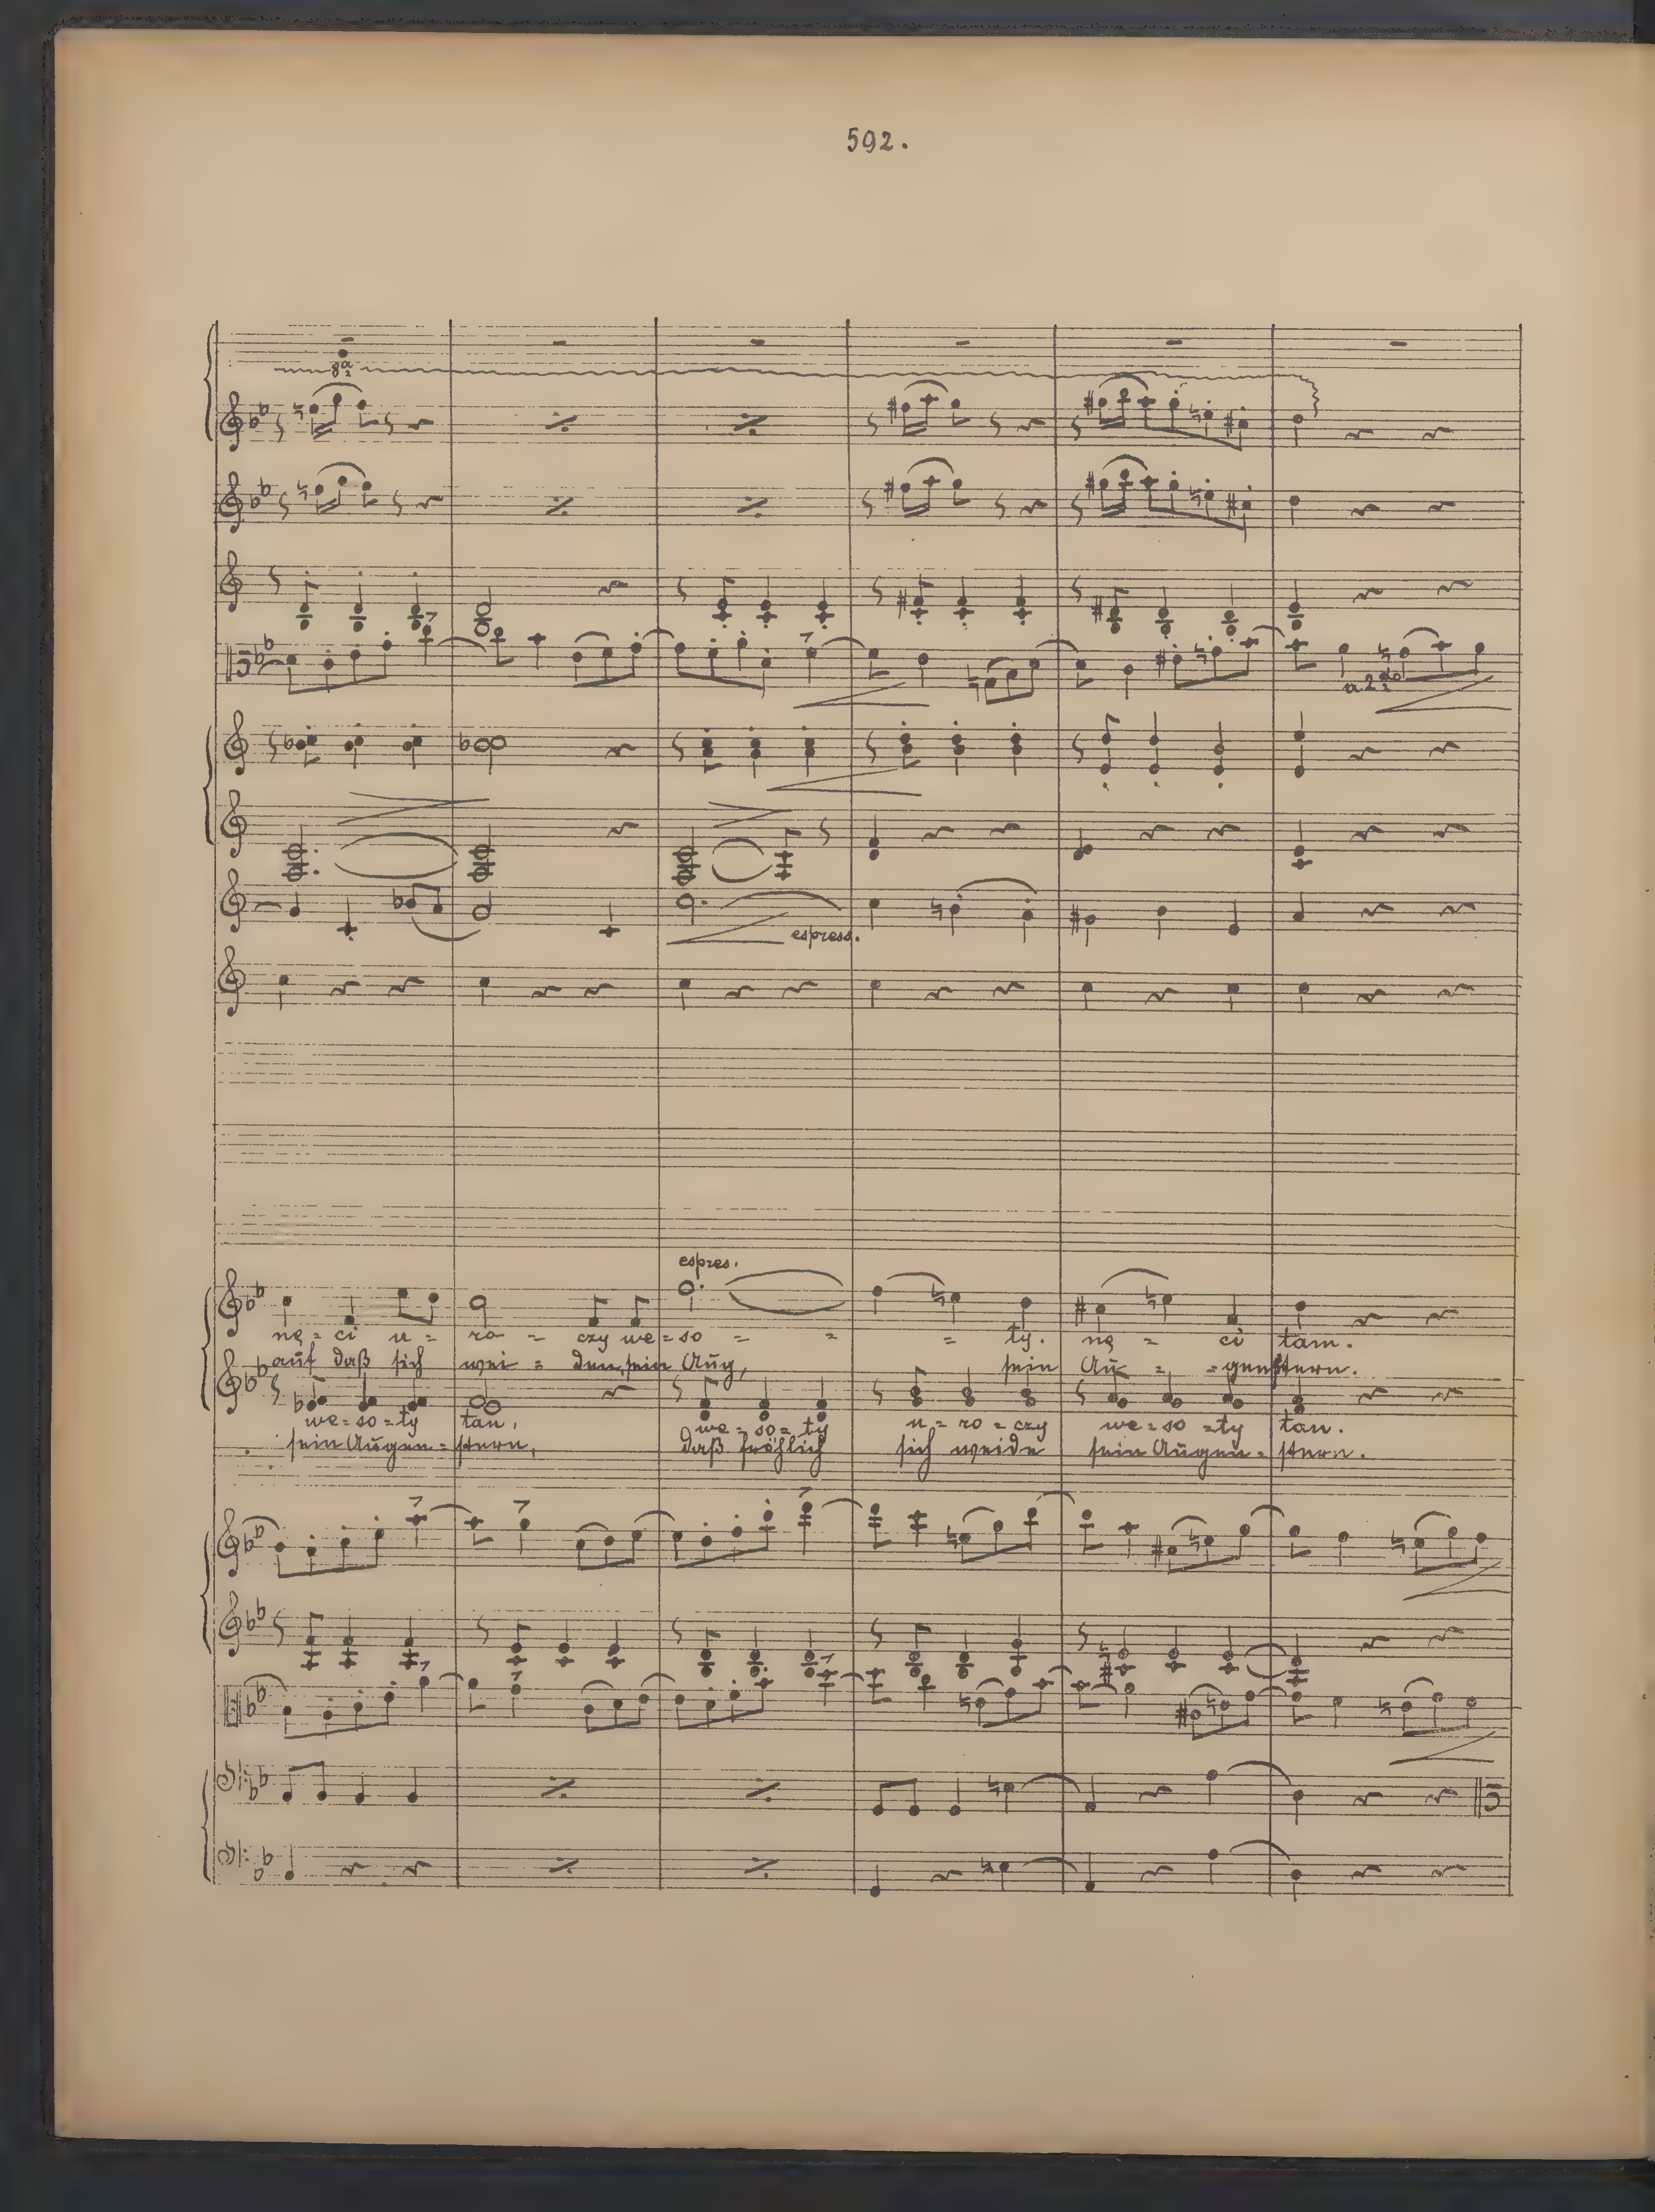 592.
8a
a 2do
espress.
espres.
nę = ci u = ro = czy we = so = = = ty. nę = ci tam.
auf daß sich wei = den, sein Aug, sein Au = = genstern.
we = so = ty tan, we = so = ty u = ro = czy we = so = ty tan.
sein Augen = stern, daß fröhlich sich weide sein Augen = stern.